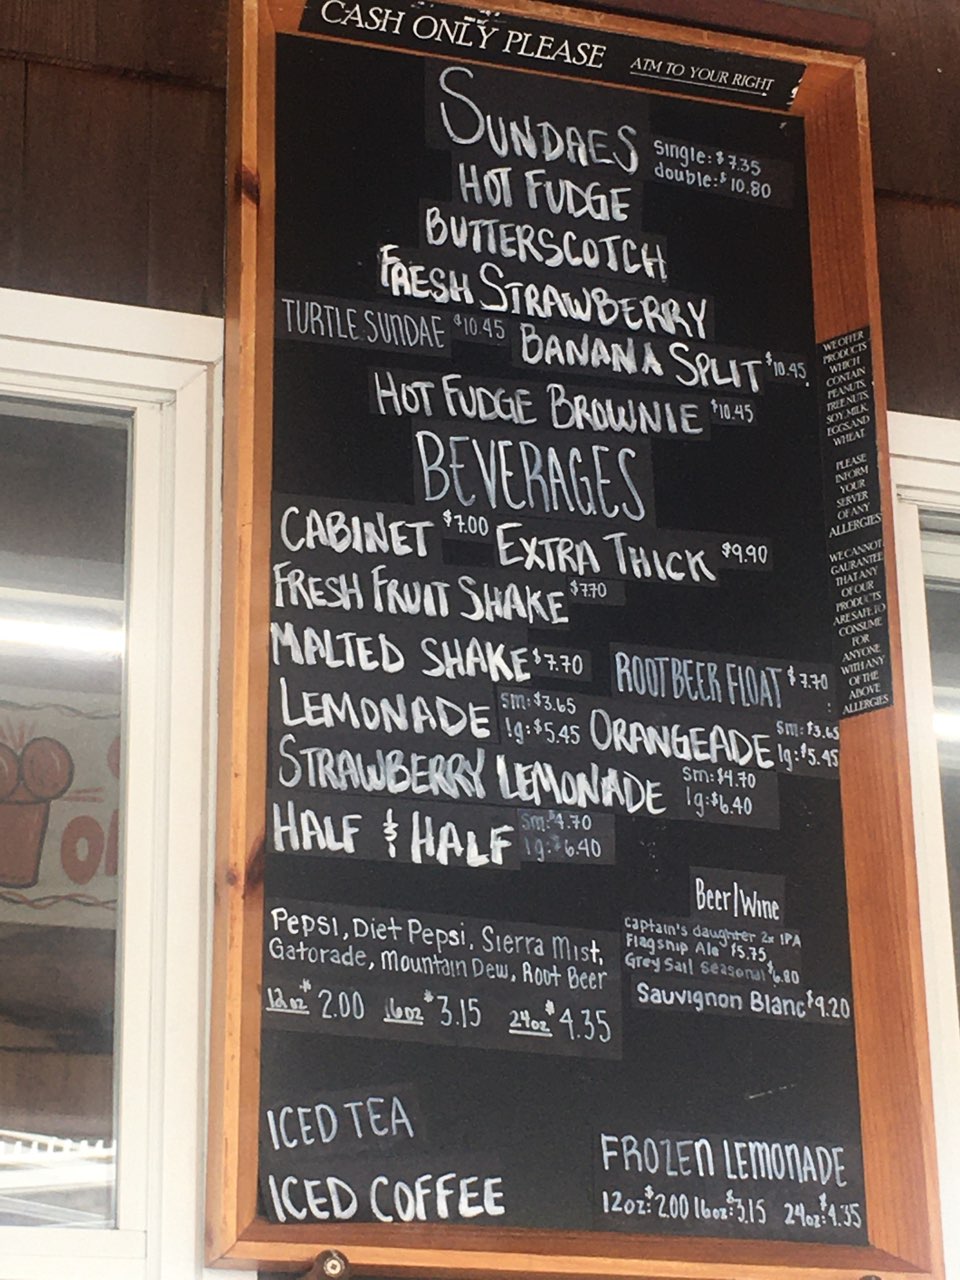 CASH ONLY PLEASE ATM TO YOUR RIGHT
SUNDAES single: $7.35
double: $10.80
HOT FUDGE
BUTTERSCOTCH
FRESH STRAWBERRY
TURTLE SUNDAE $10.45 BANANA SPLIT $10.45
HOT FUDGE BROWNIE $10.45
BEVERAGES
CABINET $7.00 EXTRA THICK $9.90
FRESH FRUIT SHAKE $7.70
MALTED SHAKE $7.70 ROOTBEER FLOAT $7.70
LEMONADE sm: $3.65 lg: $5.45 ORANGEADE sm: $3.65 lg: $5.45
STRAWBERRY LEMONADE sm: $4.70 lg: $6.40
HALF & HALF sm: $4.70 lg: $6.40
Pepsi, Diet Pepsi, Sierra Mist,
Gatorade, Mountain Dew, Root Beer
12oz $2.00 16oz $3.15 24oz $4.35
Beer/Wine
Captain's daughter 2x IPA
Flagship Ale $5.75
Grey Sail Seasonal $6.80
Sauvignon Blanc $9.20
ICED TEA
ICED COFFEE
FROZEN LEMONADE
12oz: $2.00 16oz: $3.15 24oz: $4.35
WE OFFER
PRODUCTS
WHICH
CONTAIN
PEANUTS,
TREE NUTS,
SOY, MILK,
EGGS AND
WHEAT.
PLEASE
INFORM
YOUR
SERVER
OF ANY
ALLERGIES
WE CANNOT
GAURANTEE
THAT ANY
OF OUR
PRODUCTS
ARE SAFE TO
CONSUME
FOR
ANYONE
WITH ANY
OF THE
ABOVE
ALLERGIES